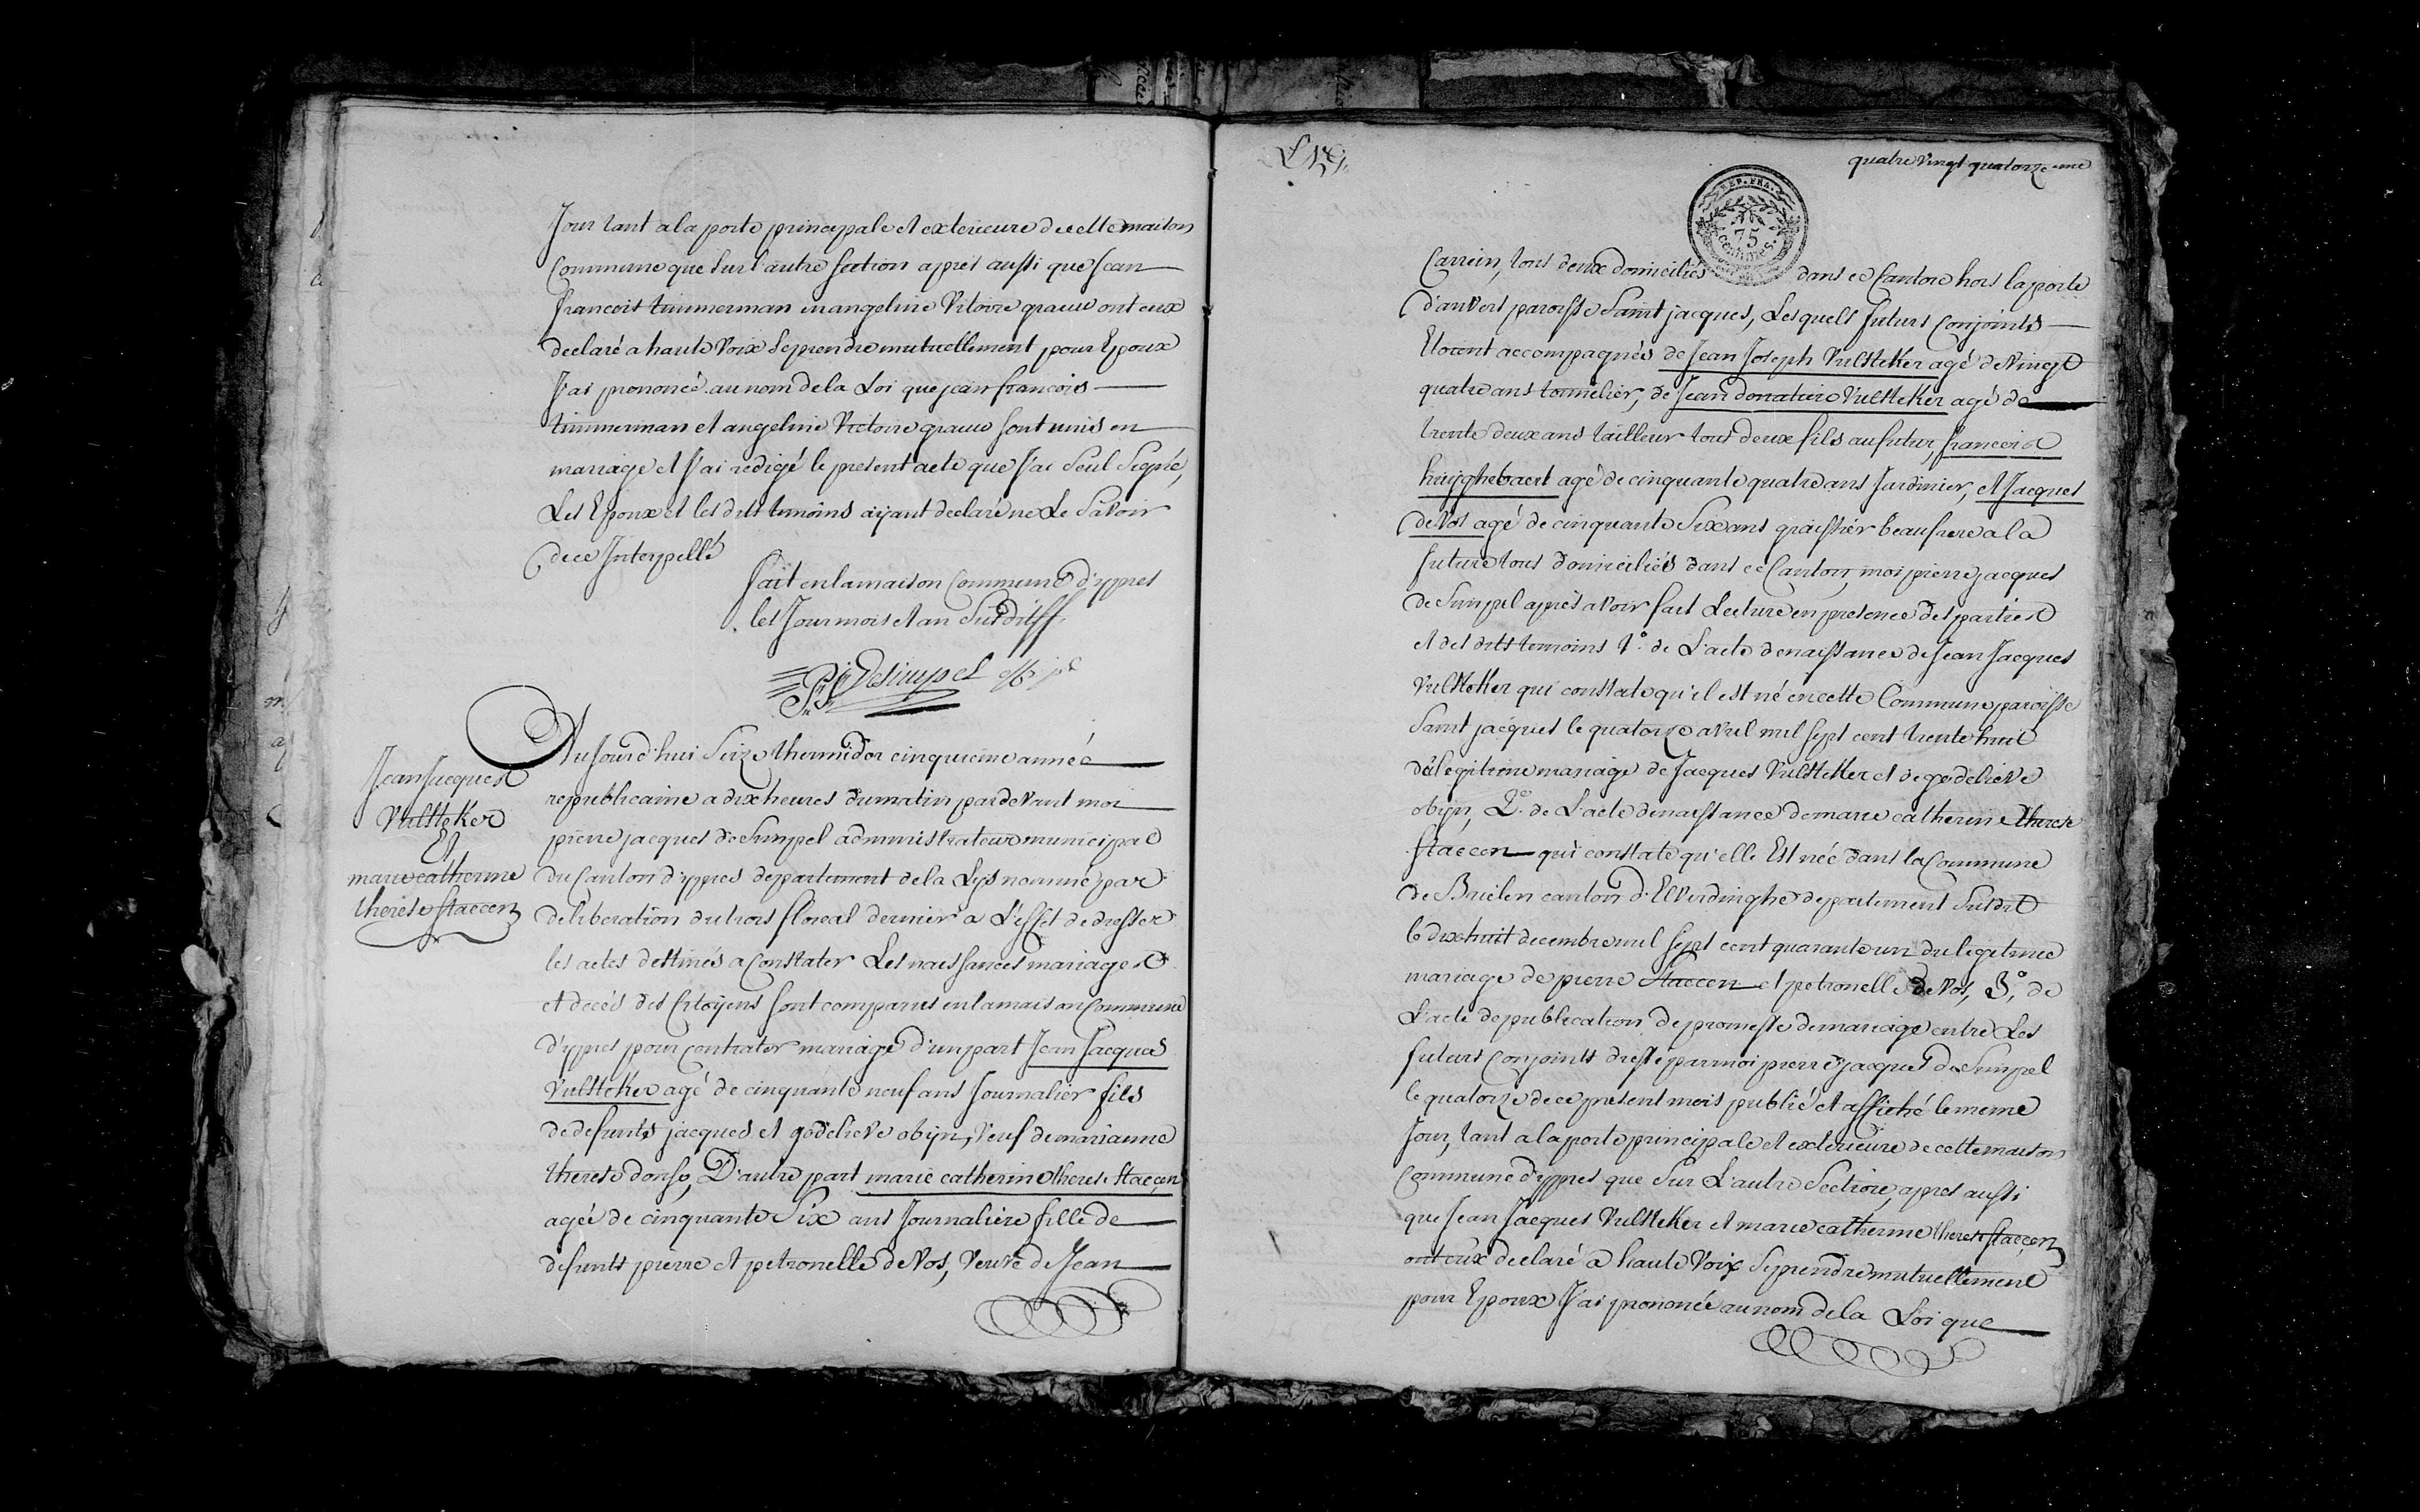 Jour tant a la porte principale et exterieure de cette maison
Commune que sur l'autre section après aussi que Jean
francois timmerman et angeline Vitoire graeuw ont eux
declaré a haute Voix se prendre mutuellement pour Epoux
J'ai prononcé au nom de la Loi que jean francois
timmerman et angeline Victoire graeuw sont unis en
mariage et J'ai redigé le present acte que J'ai Seul Signé,
Les Epoux et les dits temoins aijant declaré ne Le Savoir
de ce Interpellé
fait en la maison Commune d'ypres
les Jour mois et an Susdits
P: J: Desimpel
Jean Jacques
VulsteKer
Et
marie catherine
therese staecen
Aujourd'hui Seize thermidor cinquieme année
republicaine a dix heures du matin par devant moi
pierre jacques de Simpel administrateur municipal
du Canton d'ypres departement de la Lys nommé par
deliberation du trois floreal dernier a L'effet de dresser
les actes destinés a Constater Les naissances mariages
et decés des Citoijens sont comparus en la maison Commune
d'ypres pour contrater mariage d'un part Jean Jacques
VulsteKer agé de cinquante neuf ans Journalier fils
de defunts jacques et godelieve obijn, Veuf de marianne
therese donse, D'autre part marie catherine therese staecen
agée de cinquante Six ans Journaliere fille de
defunts pierre et petronelle de Vos, Veuve de Jean
quatre Vingt quatorzeme
REP. FRA.
75
CENTIMES.
Carrein, tous deux domiciliés dans ce Canton hors la porte
d'anvers paroisse Saint jacques, Lesquels futurs Conjoints
Etoient accompagnés de Jean Joseph VulsteKer agé de Vingt
quatre ans tonnelier, de Jean donatien VulsteKer agé de
trente deux ans tailleur tous deux fils au futur, francois
huijghebaert agé de cinquante quatre ans Jardinier, et Jacques
de Vos agé de cinquante Six ans graissier beaufrere a la
future tous domiciliés dans ce Canton, moi pierre jacques
de Simpel après avoir fait Lecture en presence des parties
et des dits temoins 1.° de L'acte de naissance de Jean Jacques
VulsteKer qui constate qu'il est né en cette Commune paroisse
Saint jacques le quatorze avril mil sept cent trente huit
du legitime mariage de Jacques VulsteKer et de godelieve
obijn, 2.° de L'acte de naissance de marie catherine therese
staecen qui constate qu'elle Est née dans la Commune
de Brielen canton d'Elverdinghe departement Susdit
le dix huit decembre mil sept cent quarante un du legitime
mariage de pierre Staecen et petronelle de Vos, 3.° de
L'acte de publication de promesse de mariage entre Les
futurs Conjoints dressé par moi pierre jacques de Simpel
le quatorze de ce present mois publié et affiché le meme
Jour, tant a la porte principale et exterieure de cette maison
Commune d'ypres que Sur L'autre Section, apres aussi
que Jean Jacques VulsteKer et marie catherine therese staecen
ont eux declaré a haute Voix Se prendre mutuellement
pour Epoux J'ai prononcé au nom de la Loi que